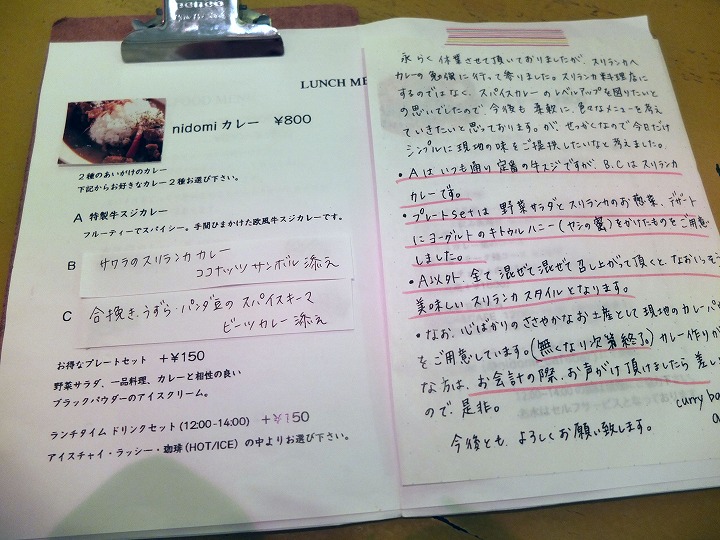 LUNCH ME
nidomi カレー ¥800
２種のあいがけのカレー
下記からお好きなカレー２種お選び下さい。
A 特製牛スジカレー
フルーティーでスパイシー。手間ひまかけた欧風牛スジカレーです。
B サワラのスリランカカレー
ココナッツサンボル添え
C 合挽き・うずら・パンダ豆のスパイスキーマ
ビーツカレー添え
お得なプレートセット +¥150
野菜サラダ、一品料理、カレーと相性の良い
ブラックパウダーのアイスクリーム。
ランチタイム ドリンクセット (12:00-14:00) +¥150
アイスチャイ・ラッシー・珈琲 (HOT/ICE) の中よりお選び下さい。
永らく休業させて頂いておりましたが、スリランカへ
カレーの勉強に行って参りました。スリランカ料理店に
するのではなく、スパイスカレーのレベルアップを図りたいと
の思いでしたので、今後も柔軟に、色々なメニューを考え
ていきたいと思っております。が、せっかくなので今日だけ
シンプルに現地の味をご提供したいなと考えました。
・Aはいつも通り定番の牛スジですが、B.Cはスリランカ
カレーです。
・プレートsetは野菜サラダとスリランカのお惣菜、デザート
にヨーグルトのキトゥルハニー(ヤシの蜜)をかけたものをご用意
しました。
・A以外、全て混ぜて混ぜて召し上がって頂くと、なおいっそう
美味しいスリランカスタイルとなります。
・なお、心ばかりのささやかなお土産として現地のカレーパ
をご用意しています。(無くなり次第終了。) カレー作りが
な方は、お会計の際、お声がけ頂けましたら差し
ので、是非。
curry ba
今後とも、よろしくお願い致します。